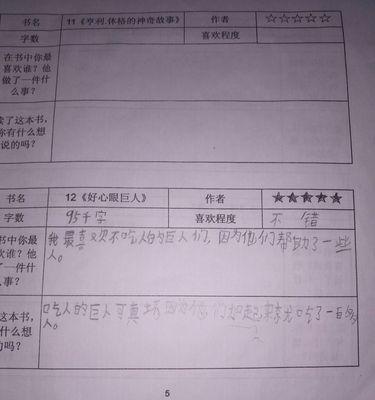 书名 11《亨利.休格的神奇故事》 作者 ☆☆☆☆☆
字数 喜欢程度
在书中你最
喜欢谁？他
做了一件什
么事？
读了这本书，
你有什么想
说的吗？
书名 12《好心眼巨人》 作者 ★★★★★
字数 95千字 喜欢程度 不错
书中你最 我最喜欢不吃人的巨人们，因为他们帮助了一些
欢谁？他 人。
了一件什
么事？
这本书， 吃人的巨人可真坏因为他们起来就吃了一百
什么想 人。
的吗？
5